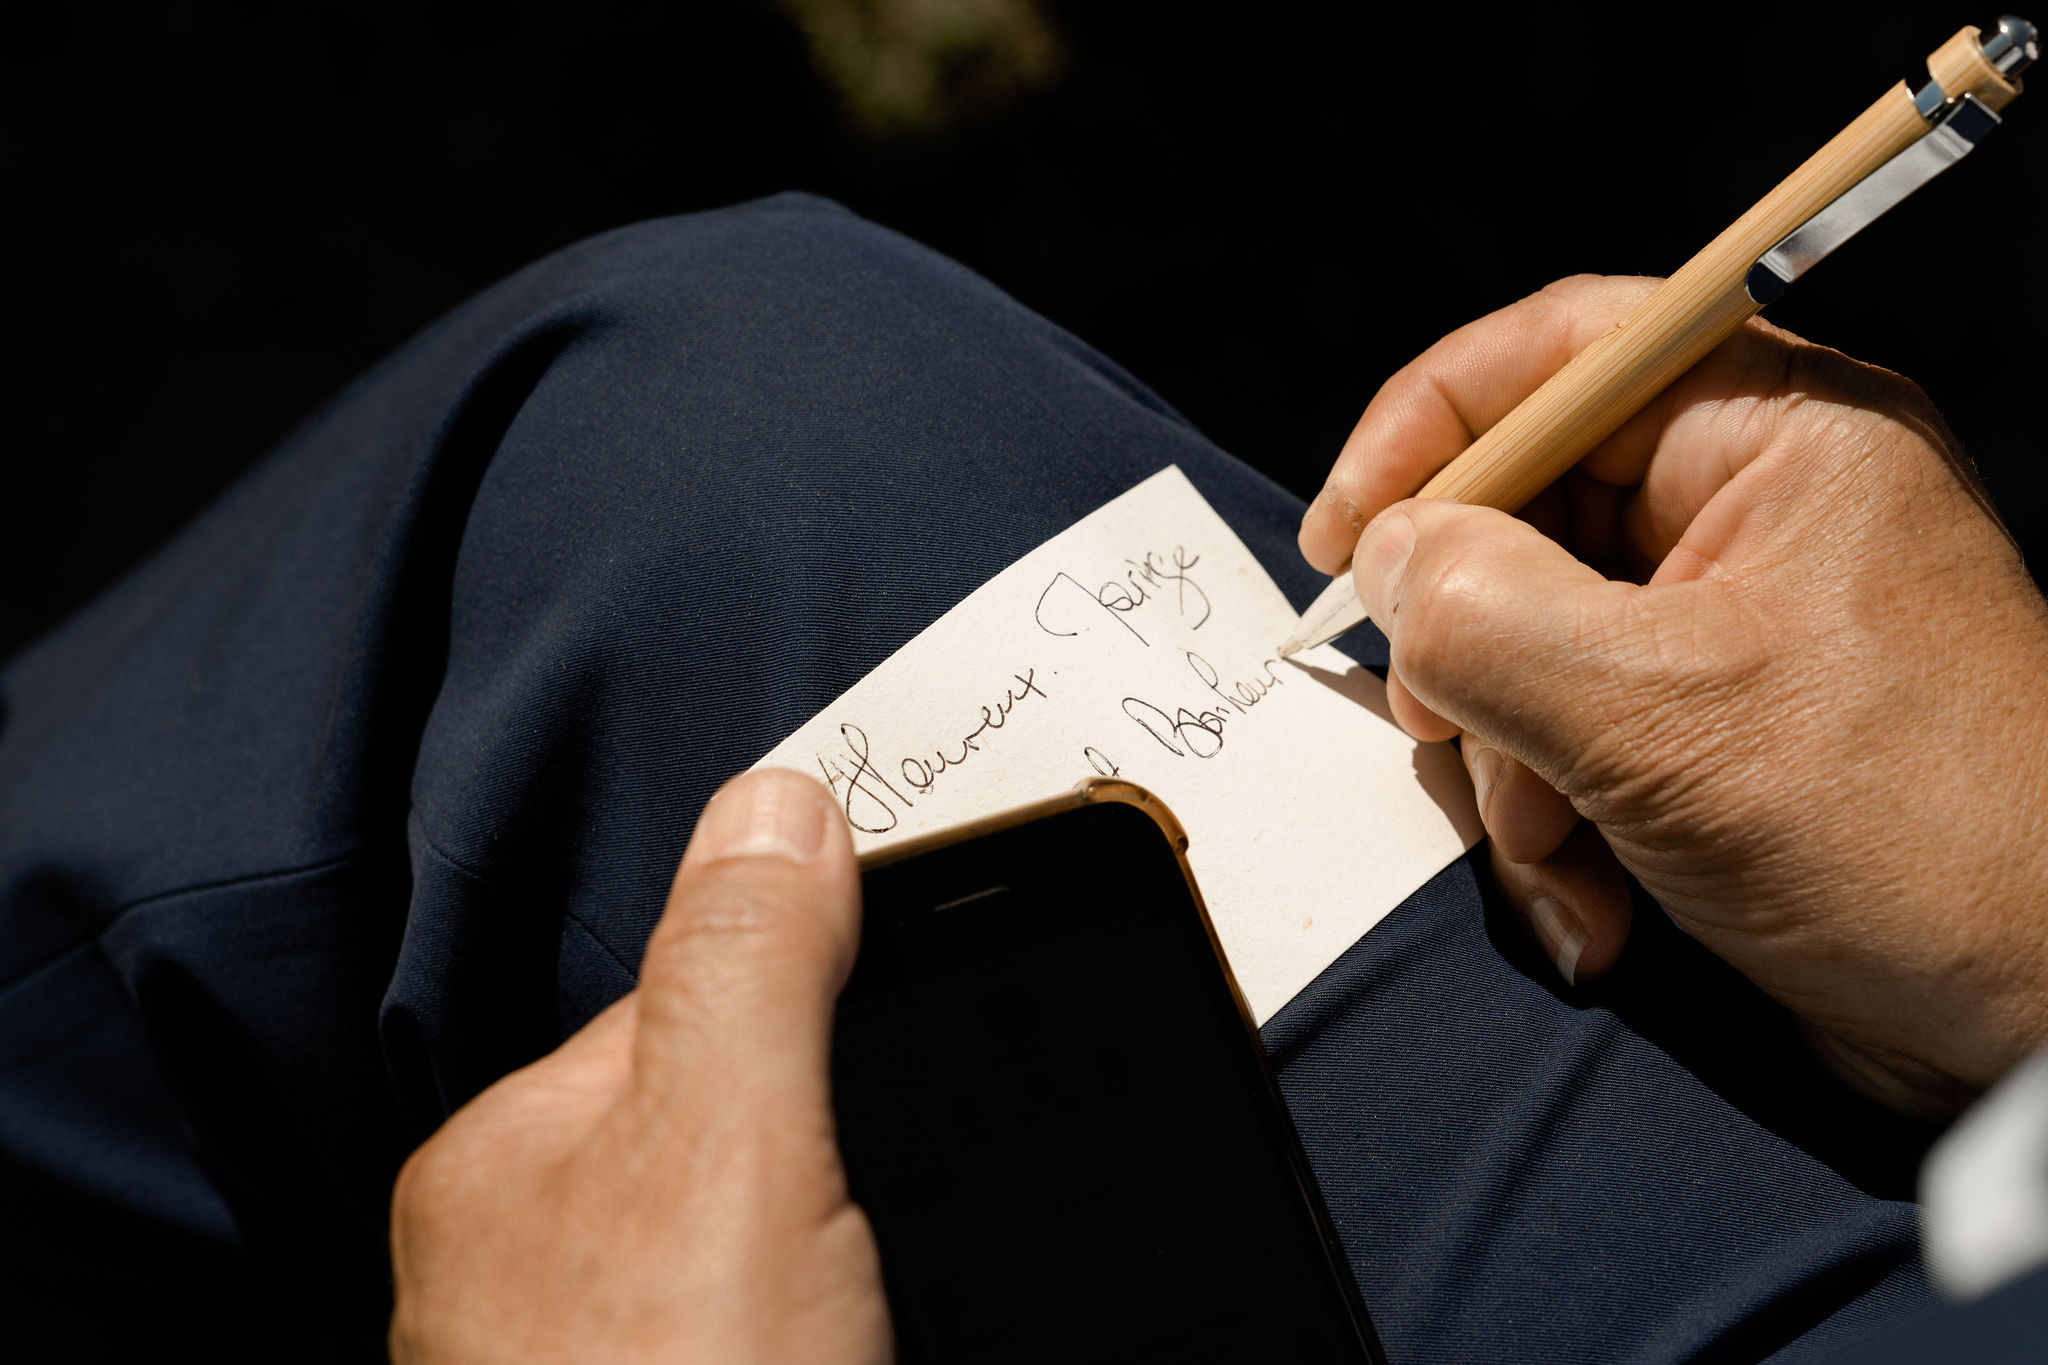 Heureux. Mariage
Bonheur